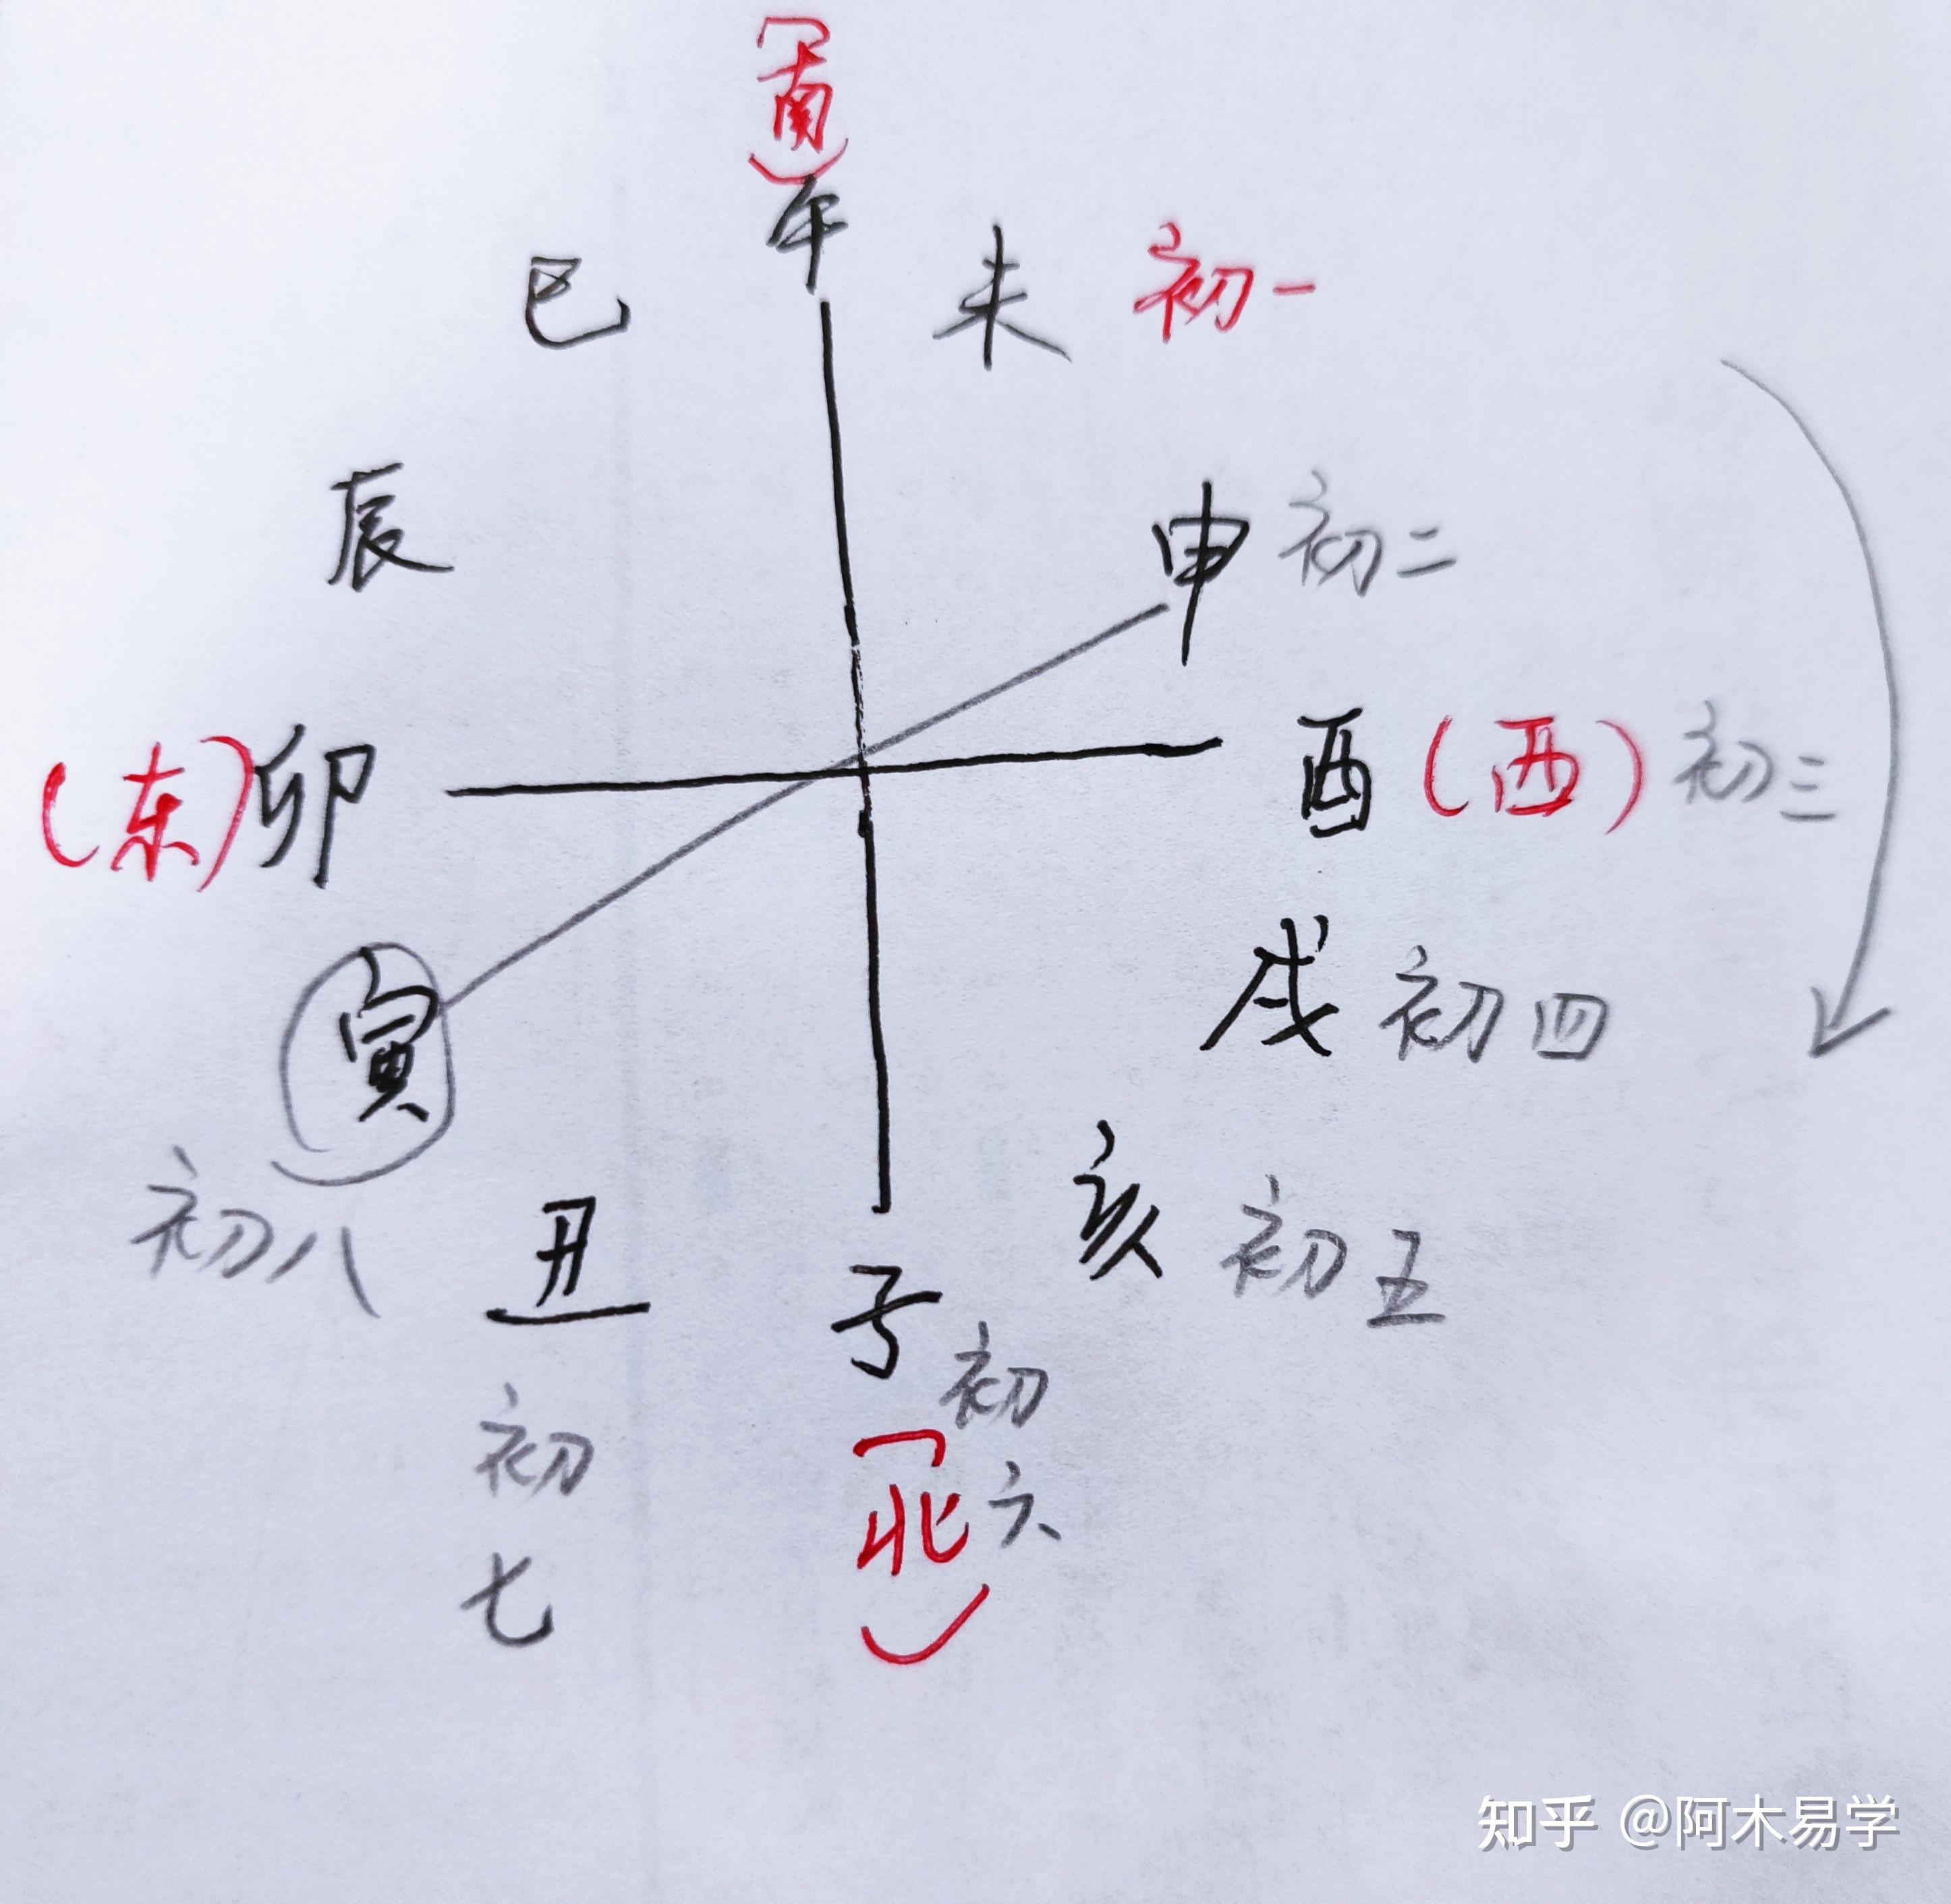 (南)
午
巳
未 初一
辰
申 初二
(东)卯
酉(西)初三
戌 初四
寅
初八
丑
初七
亥 初五
子
初六
(北)
知乎 @阿木易学